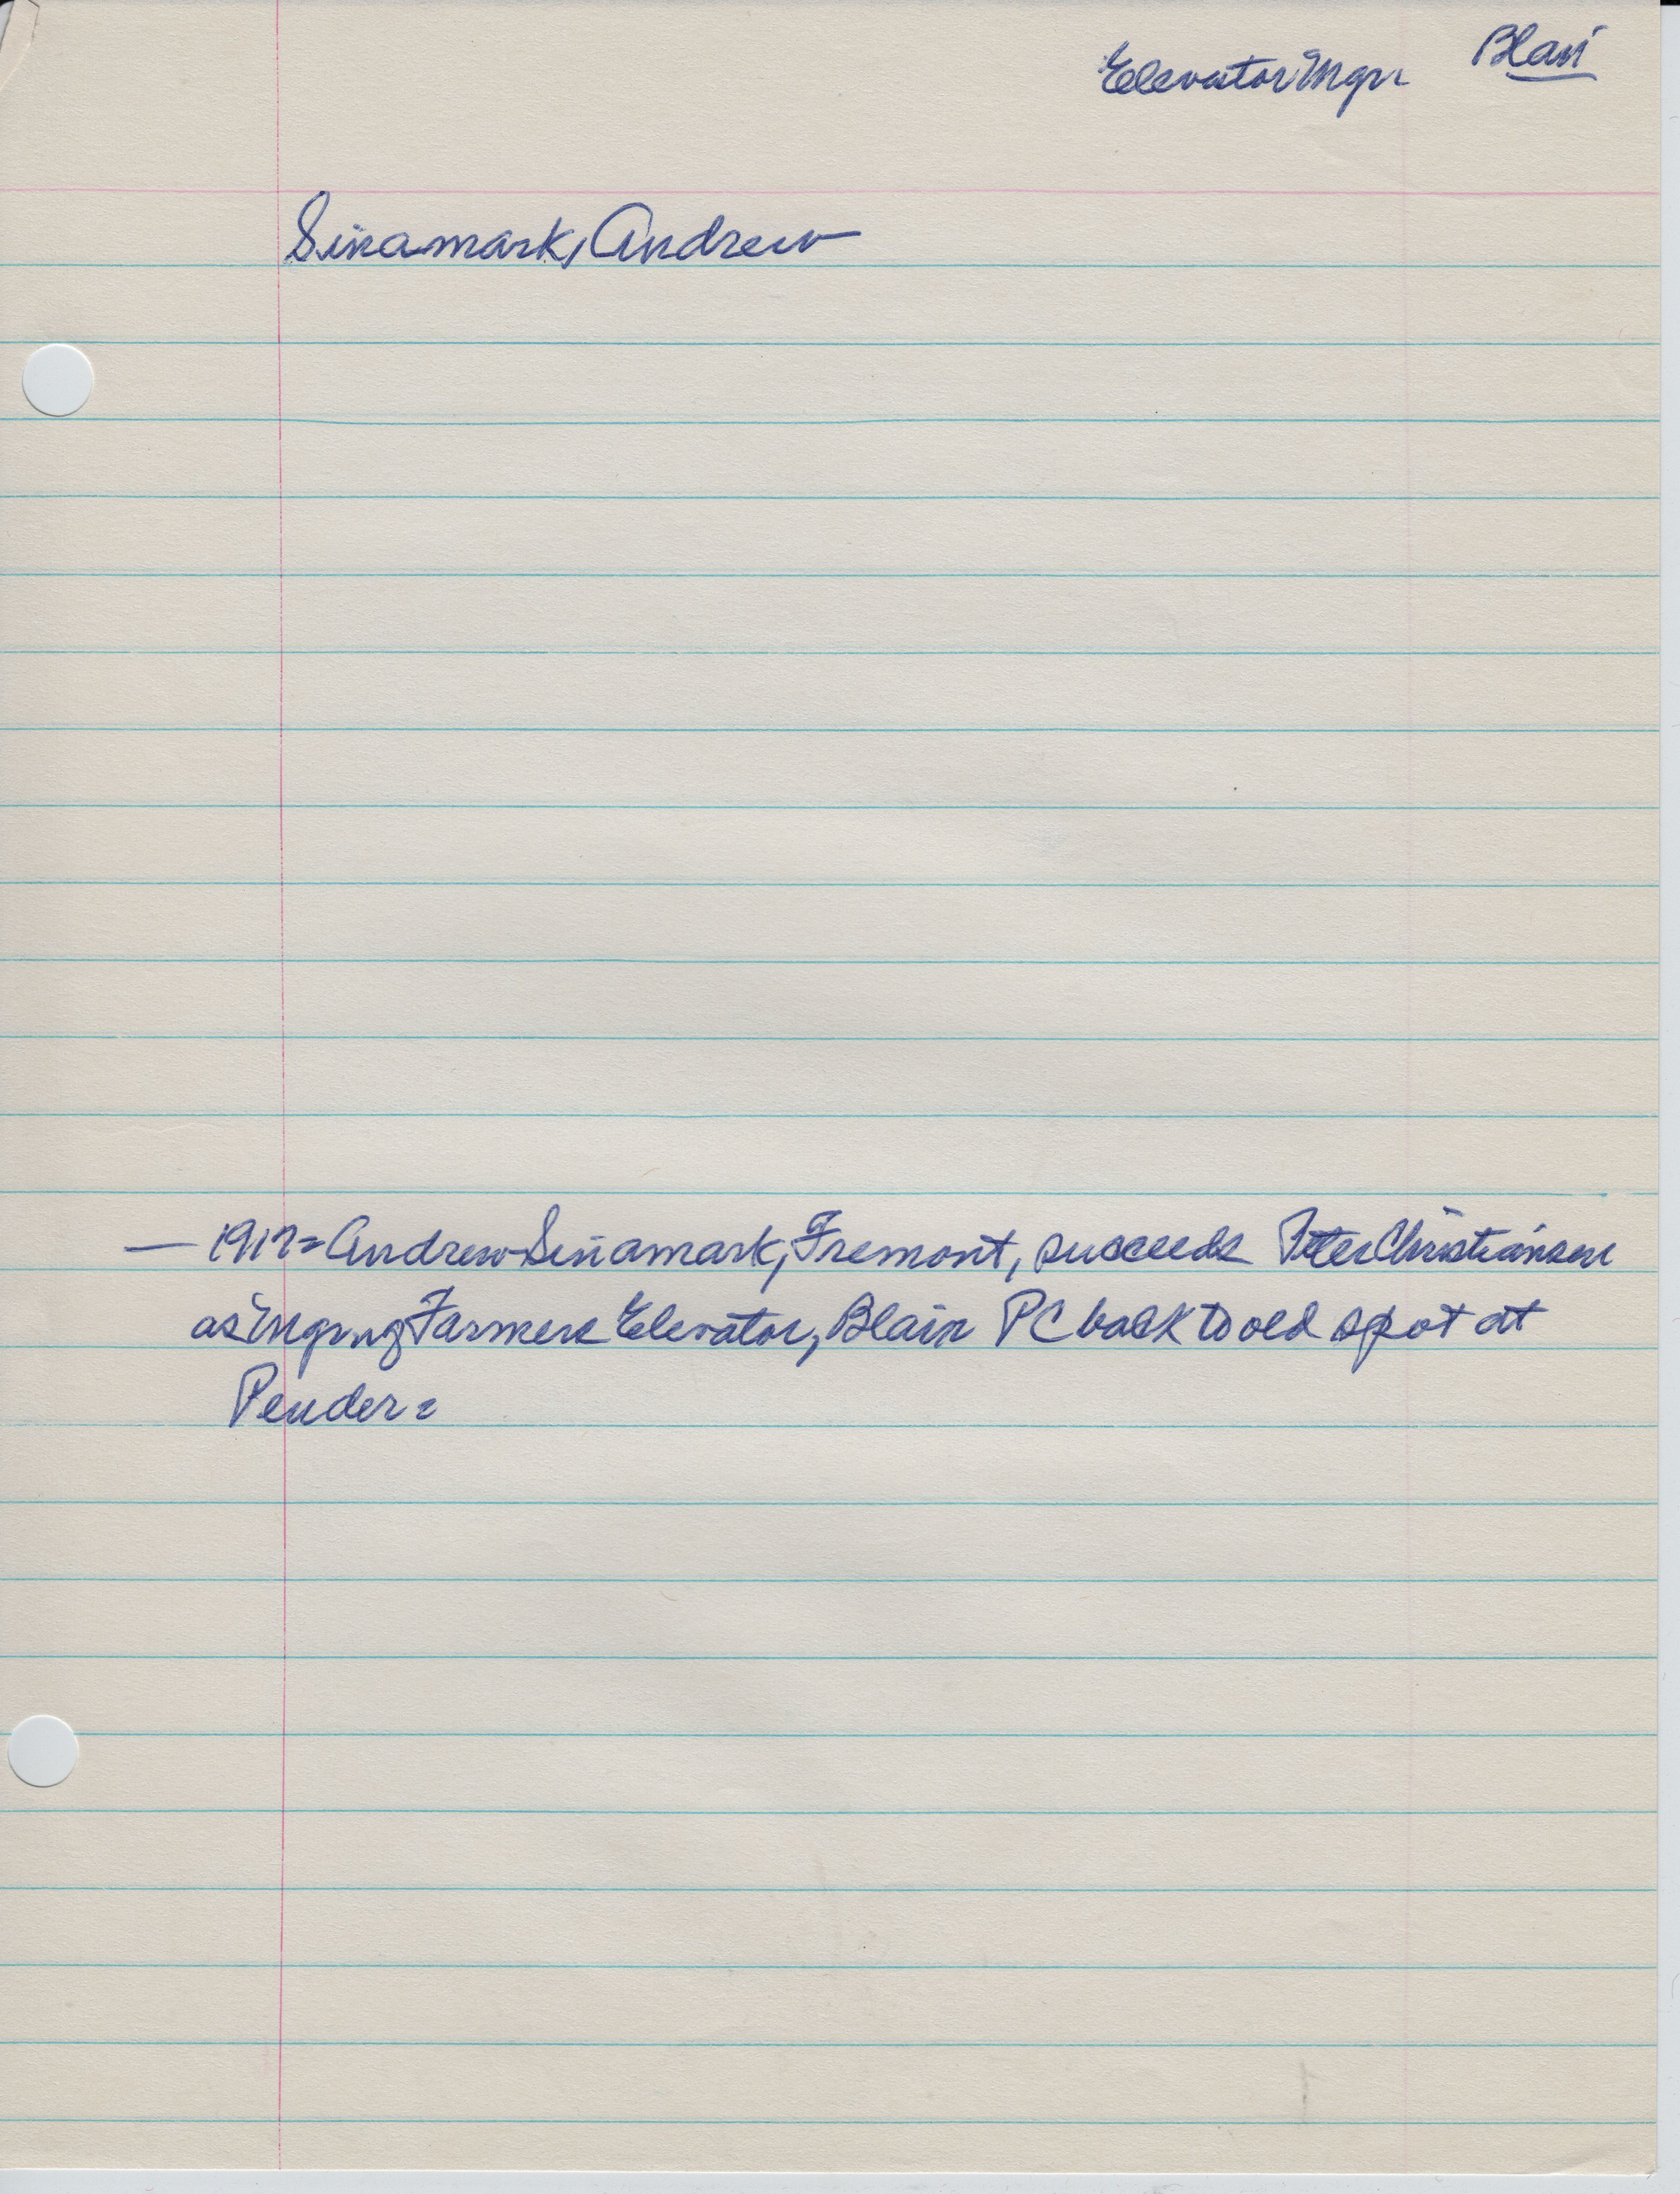 Elevator Mgr. Blair
Sinamark, Andrew
— 1917= Andrew Sinamark, Fremont, succeeds Peter Christiansen
as Mgr. of Farmers Elevator, Blair PC back to old spot at
Pender=